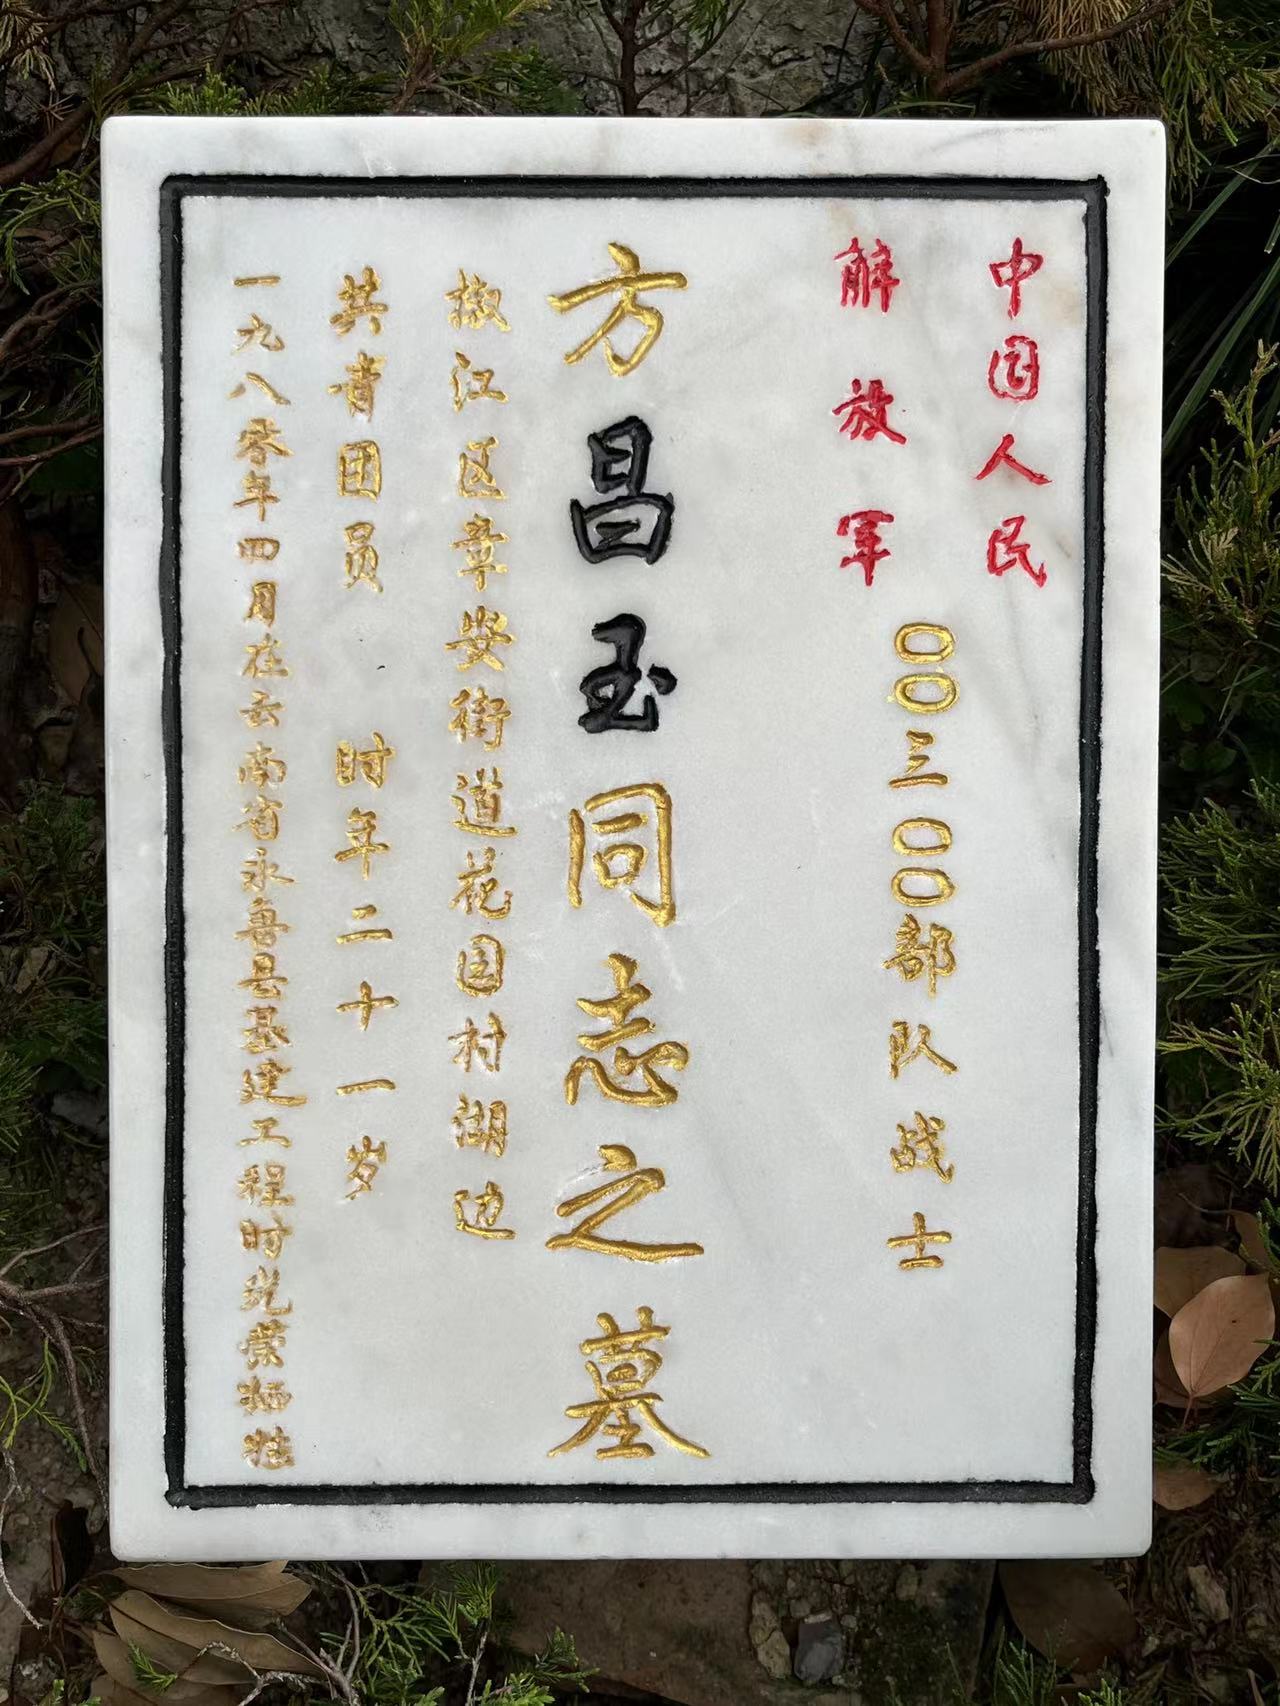 中国人民
解放军
〇〇三〇〇部队战士
方昌玉同志之墓
椒江区章安街道花园村湖边
共青团员 时年二十一岁
一九八零年四月在云南省永善县基建工程时光荣牺牲